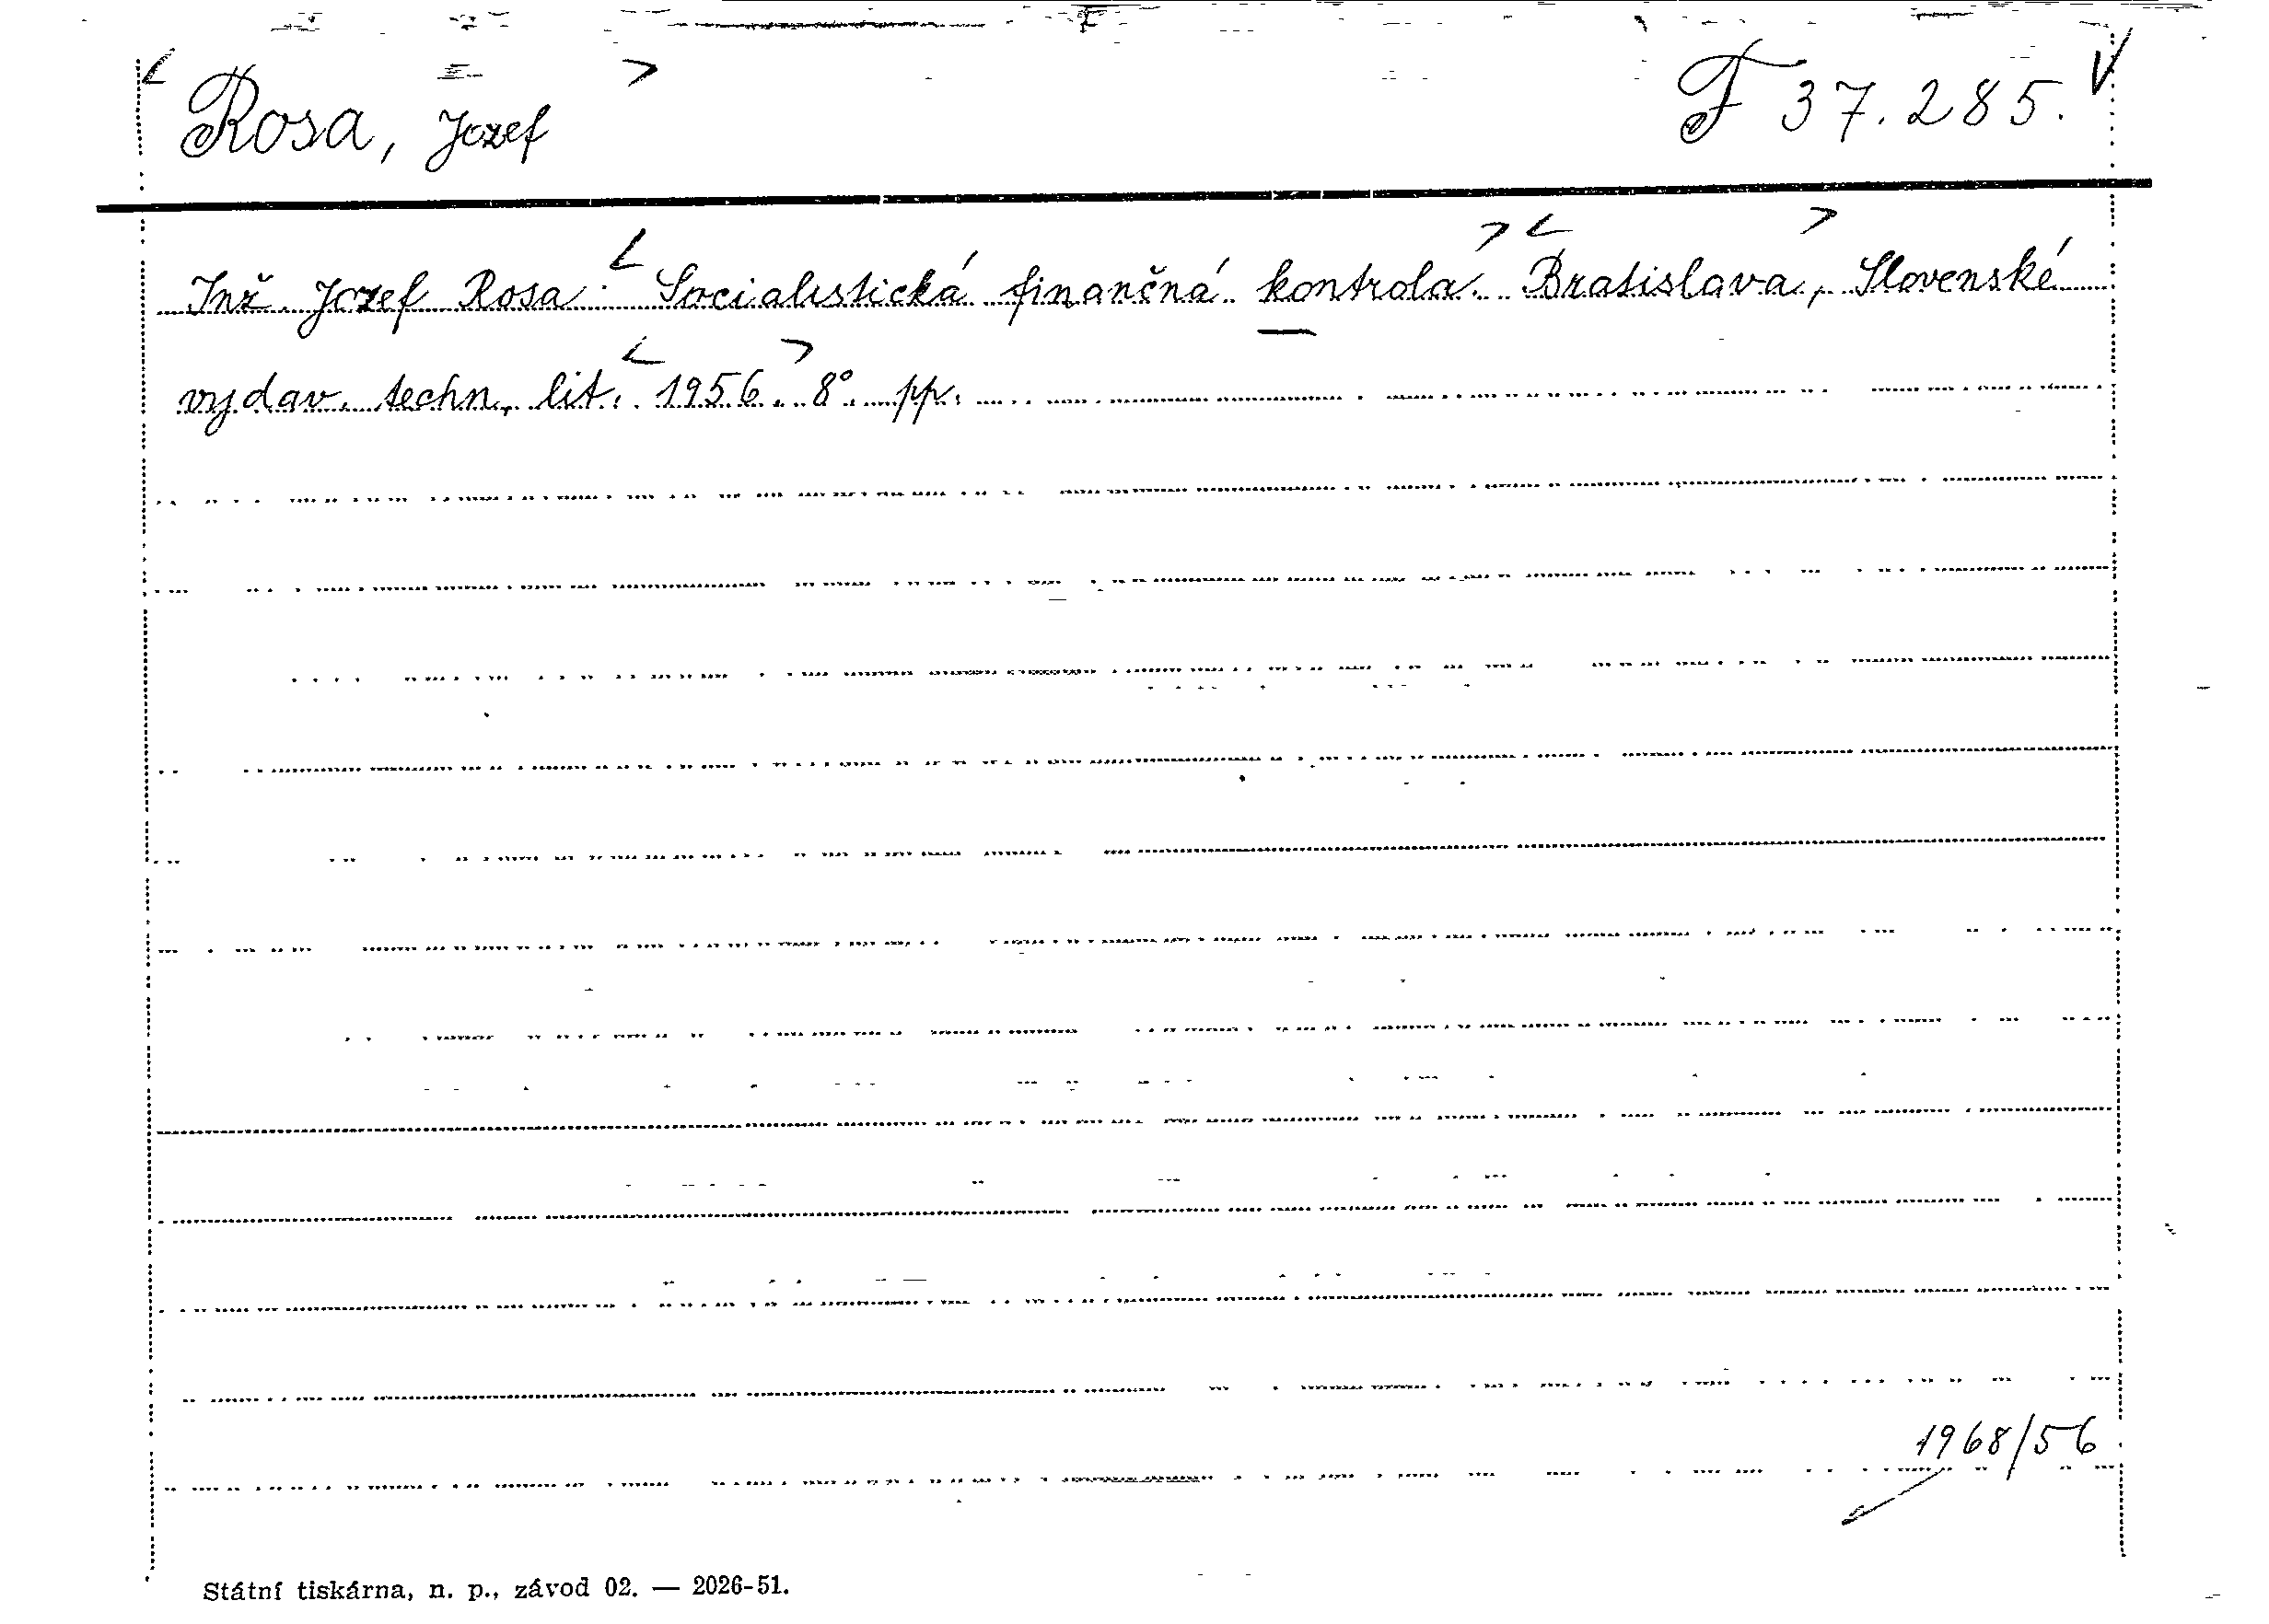 Rosa, Jozef F 37.285.
Inž. Jozef Rosa: Socialistická finančná kontrola. Bratislava, Slovenské
vydav. techn. lit. 1956. 8°. pp.
1968/56
Státní tiskárna, n. p., závod 02. — 2026-51.